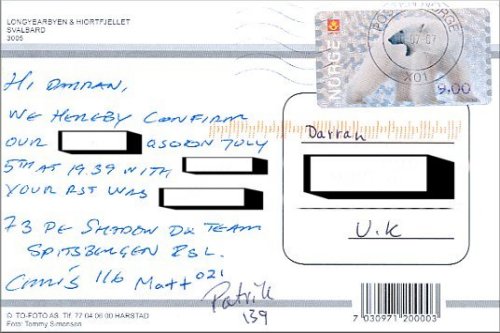 LONGYBARBYEN & HIORTFJELLET
SVALBARD
3005
NORGE
9.00
X01
HI DARRAN,
WE HEREBY CONFIRM
OUR QSO ON JULY
5TH AT 19.39 WITH
YOUR RST WAS
73 DE SHADOW DX TEAM
SPITSBERGEN ESL.
CHRIS 116 MATT 021
Patrik
139
Darran
U.K
D. TO-FOTO AS. Tlf. 77 04 06 00 HARSTAD
Foto: Tommy Simonsen
7 030971 200003